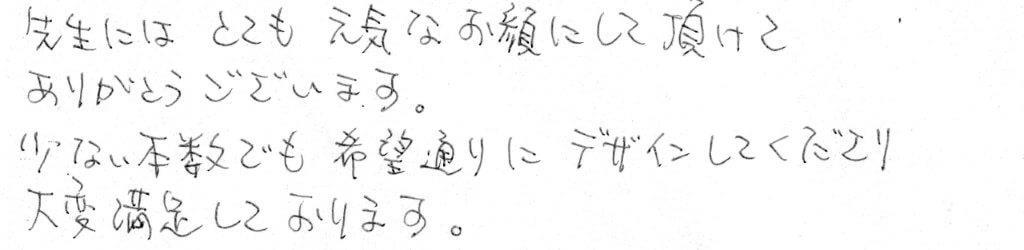 先生には とても 元気な お顔にして 頂けて
ありがとうございます。
少ない本数でも 希望通りに デザインしてくださり
大変満足しております。